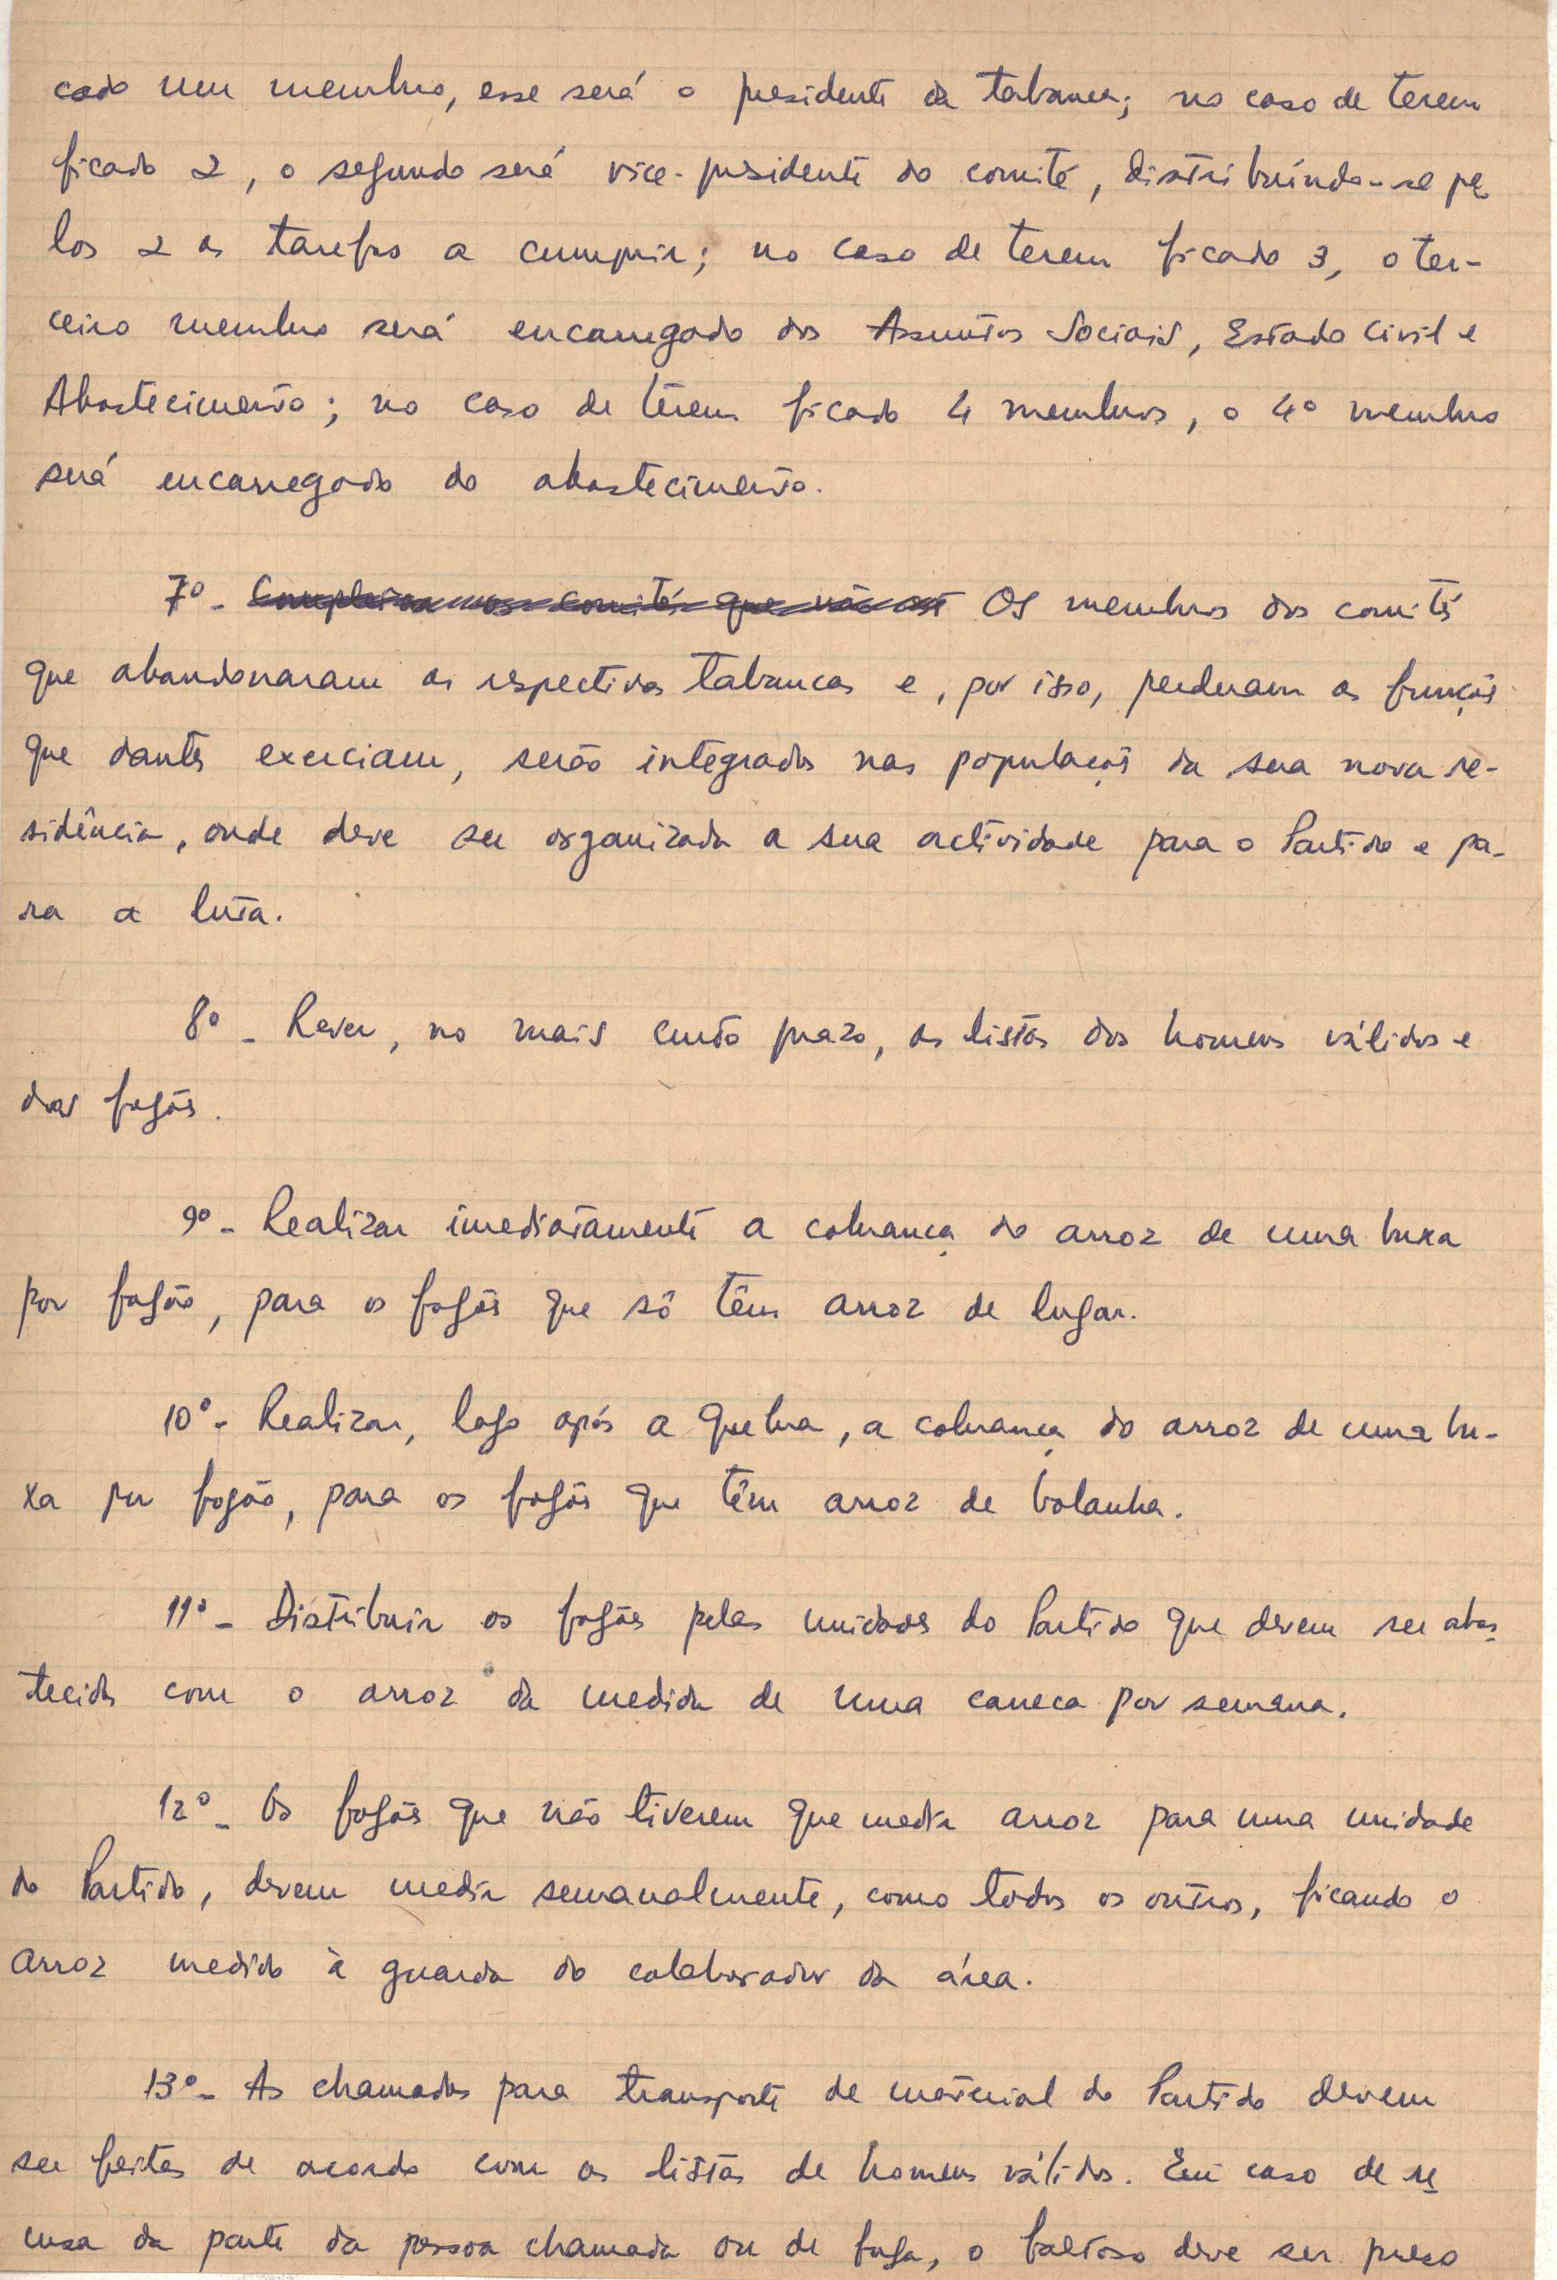 cado um membro, esse será o presidente da tabanca; no caso de terem
ficado 2, o segundo será vice-presidente do comité, distribuíndo-se pe
los 2 as tarefas a cumprir; no caso de terem ficado 3, o ter-
ceiro membro será encarregado dos Assuntos Sociais, Estado Civil e
Abastecimento; no caso de terem ficado 4 membros, o 4º membro
será encarregado do abastecimento.
7º - Os membros dos comités
que abandonaram as respectivas tabancas e, por isso, perderam as funções
que dantes exerciam, serão integrados nas populações da sua nova re-
sidência, onde deve ser organizada a sua actividade para o Partido e pa-
ra a luta.
8º - Rever, no mais curto prazo, as listas dos homens válidos e
dos fogões.
9º - Realizar imediatamente a cobrança do arroz de uma buxa
por fogão, para os fogões que só têm arroz de lugar.
10º - Realizar, logo após a quebra, a cobrança do arroz de uma bu-
xa por fogão, para os fogões que têm arroz de bolanha.
11º - Distribuir os fogões pelas unidades do Partido que devem ser abas
tecidas com o arroz da medida de uma caneca por semana.
12º - Os fogões que não tiverem que medir arroz para uma unidade
do Partido, devem medir semanalmente, como todos os outros, ficando o
arroz medido à guarda do colaborador da área.
13º - As chamadas para transporte de material do Partido devem
ser feitas de acordo com as listas de homens válidos. Em caso de re
cusa da parte da pessoa chamada ou de fuga, o faltoso deve ser preso